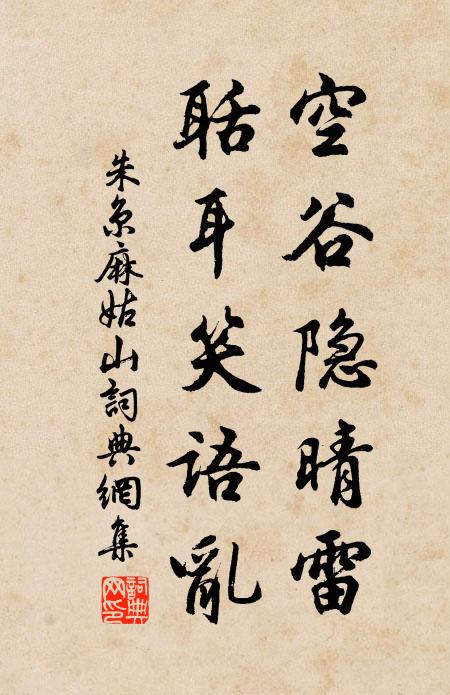 空谷隐晴雷
聒耳笑语亂
朱京麻姑山詞典網集
詞典网印